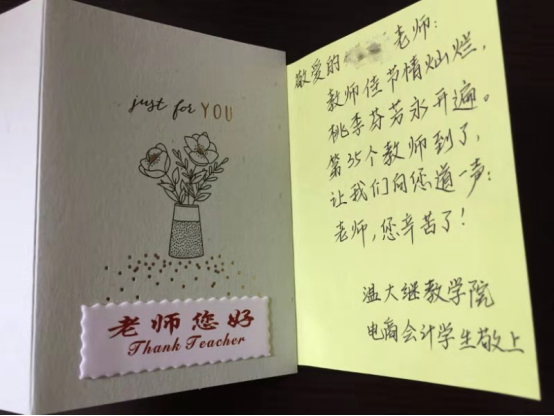 just for YOU
老师您好
Thank Teacher
敬爱的 老师:
教师佳节情灿烂,
桃李芬芳永开遍。
第35个教师到了,
让我们向您道一声:
老师,您辛苦了!
温大继教学院
电商会计学生敬上